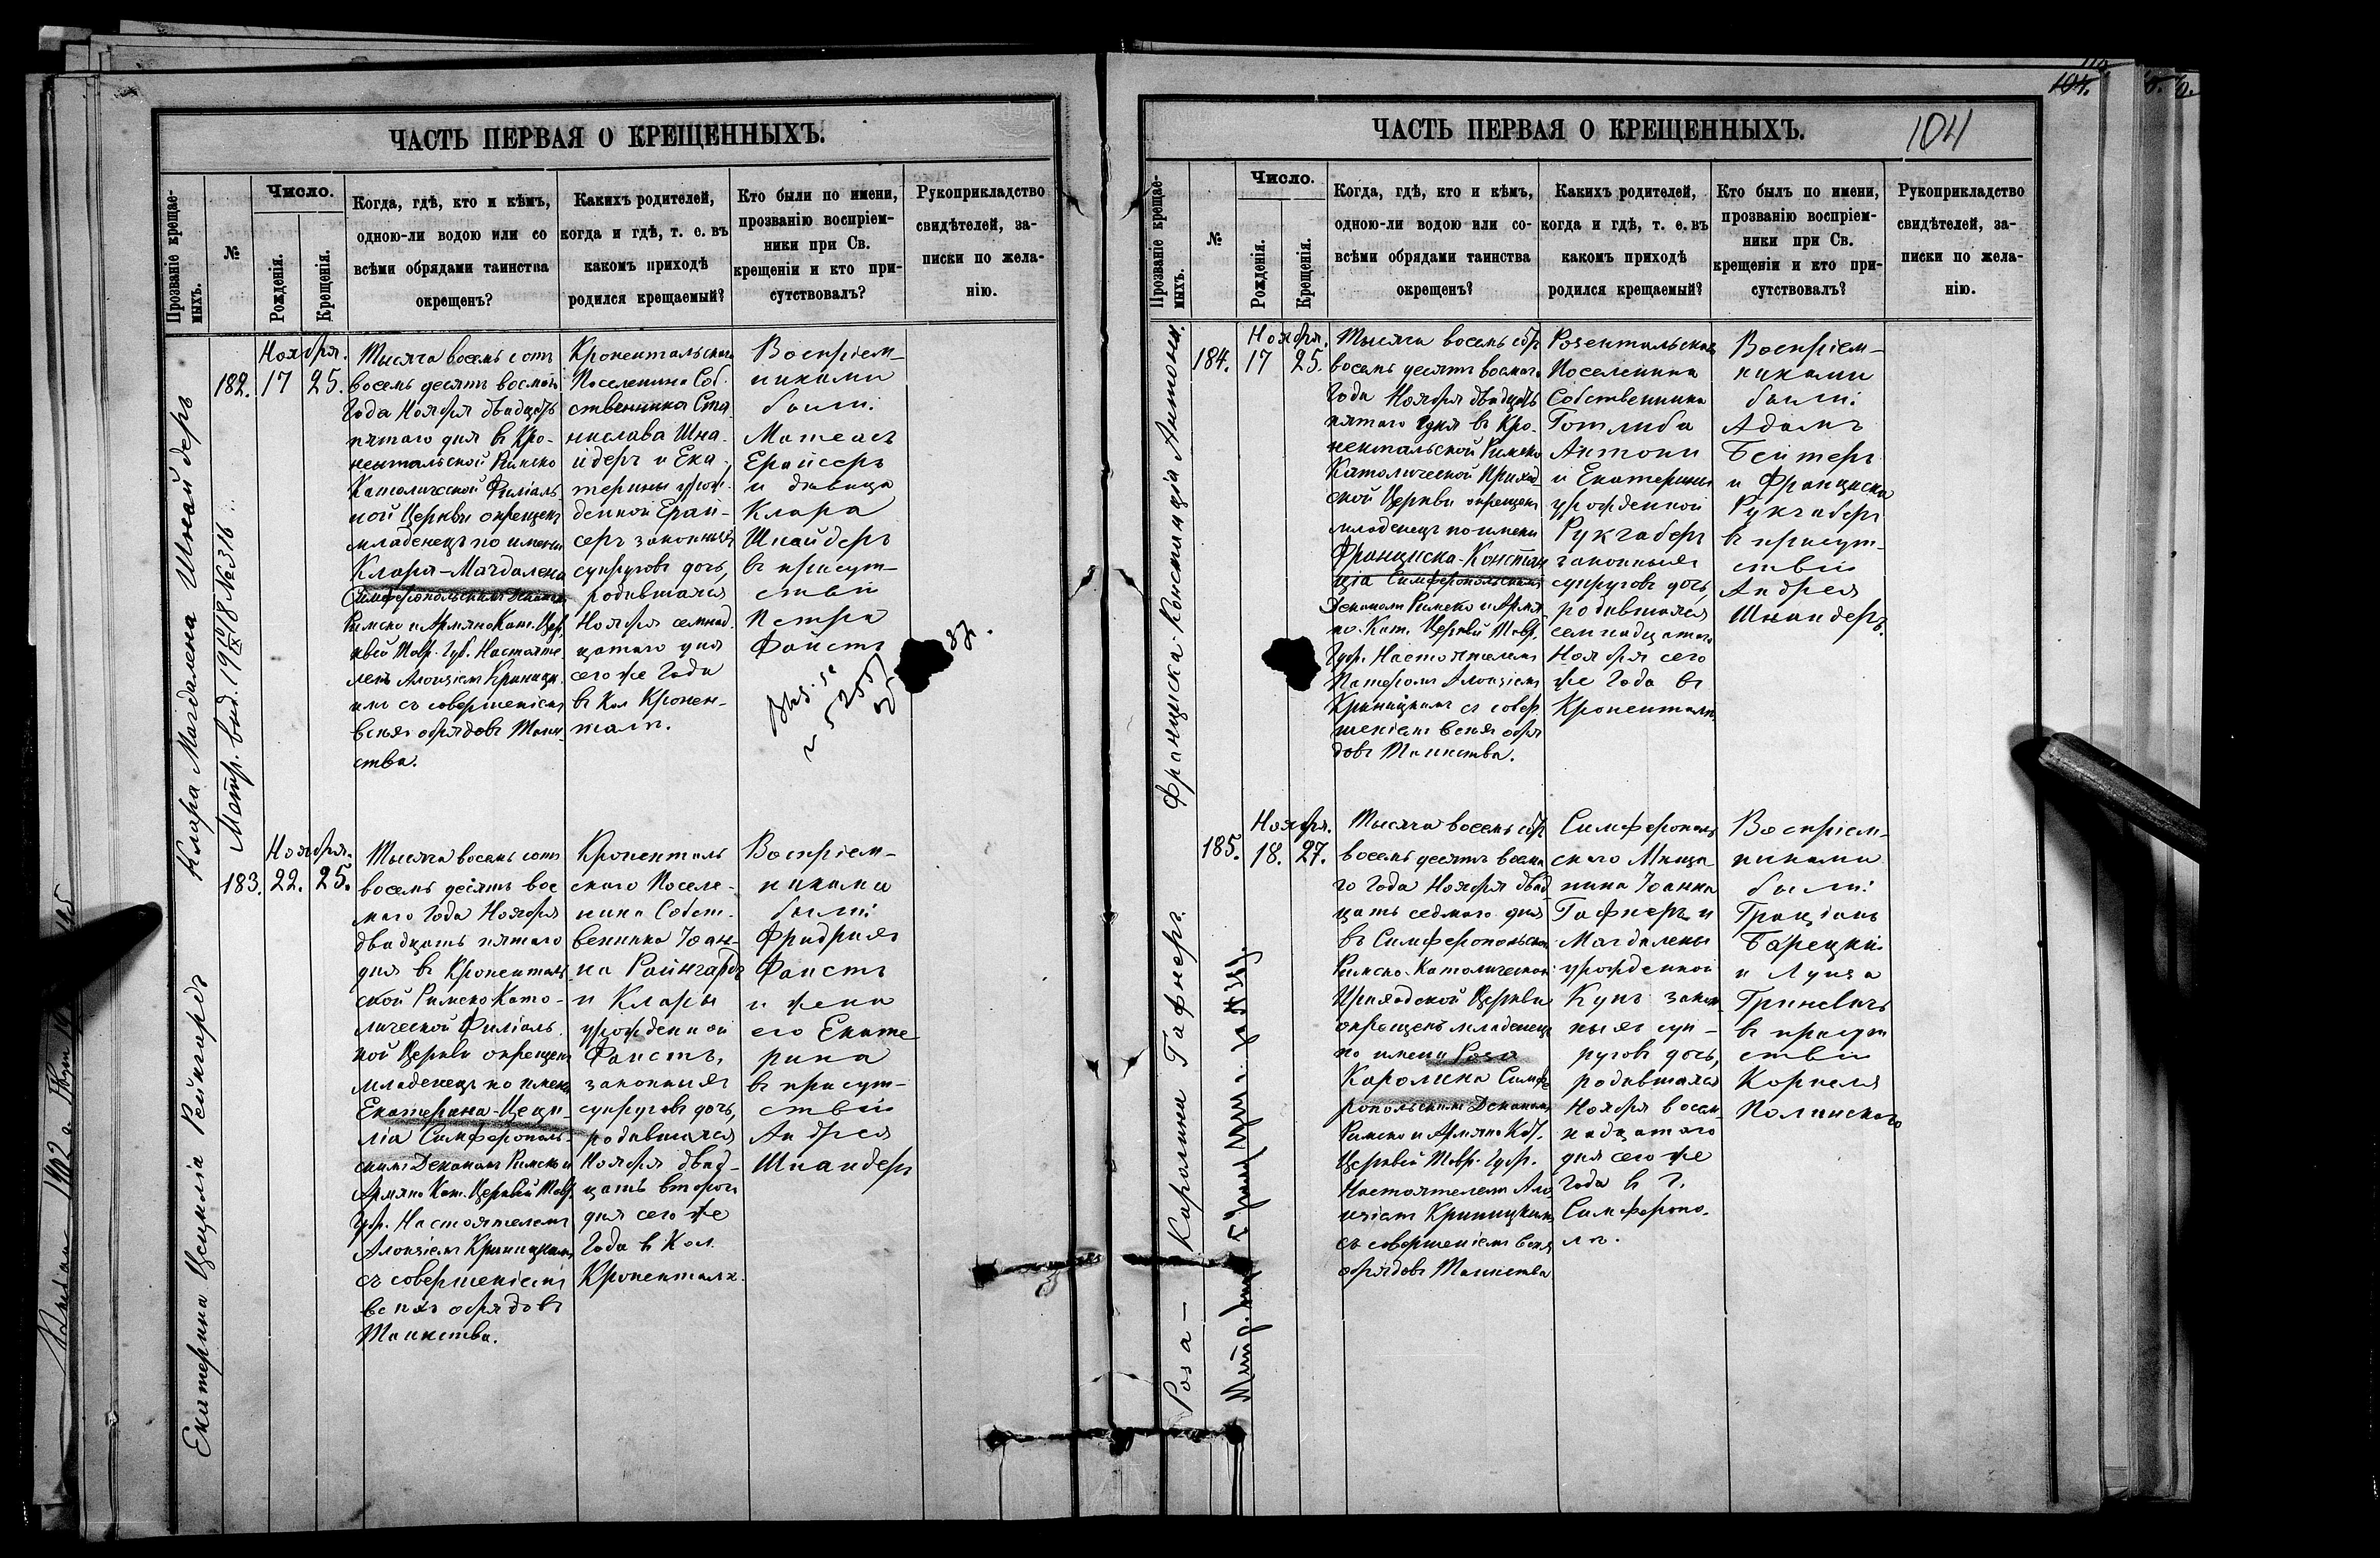 ЧАСТЬ ПЕРВАЯ О КРЕЩЕННЫХЪ.
Прозваніе крещае-
мыхъ.
№
Число.
Рожденія.
Крещенія.
Когда, гдѣ, кто и кѣмъ,
одною-ли водою или со
всѣми обрядами таинства
окрещенъ?
Какихъ родителей,
когда и гдѣ, т. е. въ
какомъ приходѣ
родился крещаемый?
Кто были по имени,
прозванію воспріем-
ники при Св.
крещеніи и кто при-
сутствовалъ?
Рукоприкладство
свидѣтелей, за-
писки по жела-
нію.
Клара Магдалена Шнайдеръ
Метр. выд. № 316
Ноября.
182. 17 25.
Тысяча восемь сотъ
восемь десятъ восмаго
Года Ноября двадцать
пятаго дня въ Кро-
нентальской Римско
Католической Филіаль-
ной Церкви окрещенъ
младенецъ по имени
Клара-Магдалена
Симферопольскимъ Деканомъ
Римско и Армяно Кат. Цер.
квей Тавр. Губ. Настояте-
лемъ Алоизіем Криниц-
имъ съ совершеніемъ
всехъ обрядовъ Таин-
ства.
Кронентальскаго
Поселенина Соб-
ственника Ста
нислава Шна-
йдеръ и Ека-
терины урож-
денной Ерай-
серъ законныхъ
супруговъ дочь,
родившаяся
Ноября семнад.
цатаго дня
сего же Года
въ Кол Кронен-
таль.
Воспріем-
никами
были:
Матеасъ
Ерайсеръ
и дѣвица
Клара
Шнайдеръ
въ присут-
ствіи
Петра
Фаистъ
Екатерина Цецилія Рейнгардъ
Ноября.
183. 22. 25.
Тысяча восемь сотъ
восемь десятъ вос
маго Года Ноября
двадцать пятаго
дня въ Кроненталь
ской Римско Като-
лической Филіаль.
ной Церкви окрещенъ
младенецъ по имени
Екатерина-Цеци-
лія Симферополь-
скимъ Деканомъ Римско и
Армяно Кат. Церквей Тавр.
Губ. Настоятелемъ
Алоизіемъ Криницкимъ
съ совершеніемъ
всехъ обрядовъ
Таинства.
Кроненталь
скаго Поселе-
нина Собст-
венника Іоан-
на Райнгардъ
и Клары
урожденной
Фаистъ,
законныхъ
супруговъ дочь,
родившаяся
Ноября двад-
цать втораго
дня сего же
Года въ Кол.
Кроненталь.
Воспріем-
никами
были:
Фридрихъ
Фаистъ
и жена
его Екате
рина
въ присут-
ствіи
Андрея
Шнаидеръ
ЧАСТЬ ПЕРВАЯ О КРЕЩЕННЫХЪ.
104
104.
Прозваніе крещае-
мыхъ.
№
Число.
Рожденія.
Крещенія.
Когда, гдѣ, кто и кѣмъ,
одною-ли водою или со-
всѣми обрядами таинства
окрещенъ?
Какихъ родителей,
когда и гдѣ, т. е. въ
какомъ приходѣ
родился крещаемый?
Кто былъ по имени,
прозванію воспріем-
ники при Св.
крещеніи и кто при-
сутствовалъ?
Рукоприкладство
свидѣтелей, за-
писки по жела-
нію.
Франциска-Констанція Антони.
Ноября.
184. 17 25.
Тысяча восемь сотъ
восемь десятъ восмаго
Года Ноября двадцать
пятаго дня въ Кро-
нентальской Римско
Католической Приход
ской Церкви окрещенъ
младенецъ по имени
Франциска-Констан
ція Симферопольскимъ
Деканомъ Римско и Армя
но. Кат. Церквей Тавр.
Губ. Настоятелемъ
Патеромъ Алоизіемъ
Криницкимъ съ совер
шеніемъ всехъ обря
довъ Таинства.
Розентальскаго
Поселенина
Собственника
Готлиба
Антони
и Екатерины
урожденной
Рукгаберъ
законныхъ
супруговъ дочь,
родившаяся
семнадцатаго
Ноября сего
же Года въ
Кроненталь.
Воспріем-
никами
были:
Адамъ
Бейтеръ
и Франциска
Рукгаберъ
въ присут-
ствіи
Андрея
Шнаидеръ.
Роза — Каролина Гафнеръ.
Ноября.
185. 18. 27.
Тысяча восемь сотъ
восемь десятъ восма
го Года Ноября двад
цать седмаго дня
въ Симферопольской
Римско-Католической
Приходской Церкви
окрещенъ младенецъ
по имени Роза
Каролина Симфе
ропольскимъ Деканомъ
Римско и Армяно Кат.
Церквей Тавр. Губ.
Настоятелемъ Ало
изіемъ Криницкимъ
съ совершеніемъ всехъ
обрядовъ Таинства
Симферополь
скаго Мѣща
нина Іоанна
Гафнеръ и
Магдалены
урожденной
Кунъ закон
ныхъ суп-
руговъ дочь,
родившаяся
Ноября восем
надцатаго
дня сего же
Года въ Г.
Симферопо.
лѣ.
Воспріем-
никами
были:
Граціанъ
Барецкій
и Луиза
Гриневичъ
въ присут
ствіи
Корнеля
Полинскаго